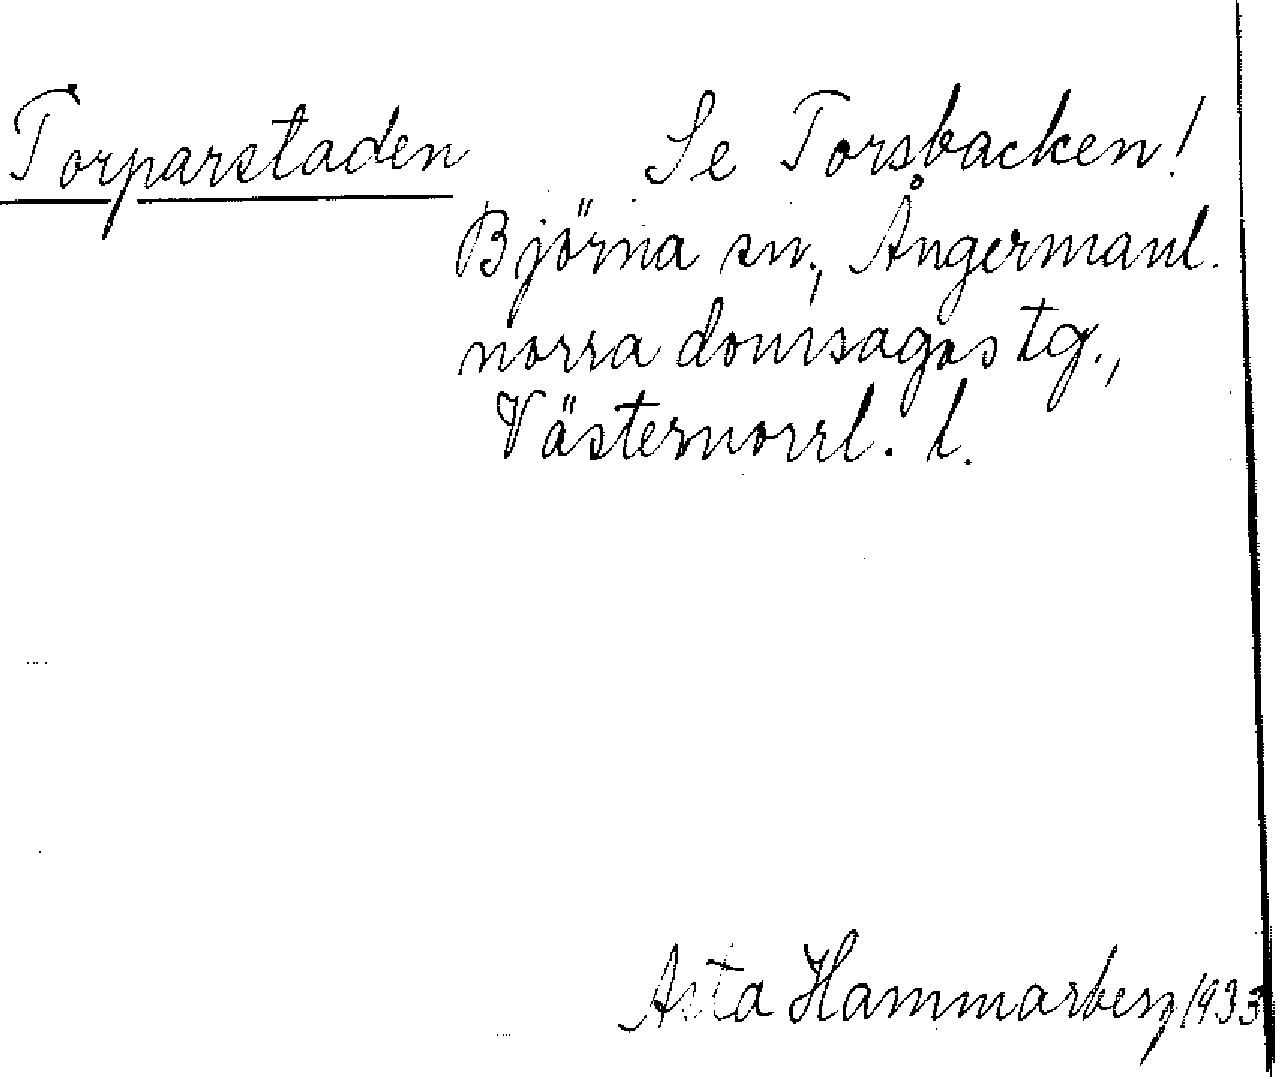 Torparstaden Se Torsbacken!
Björna sn., Ångermanl.
norra domsagas tg.,
Västernorrl. l.
Asta Hammarberg 1933